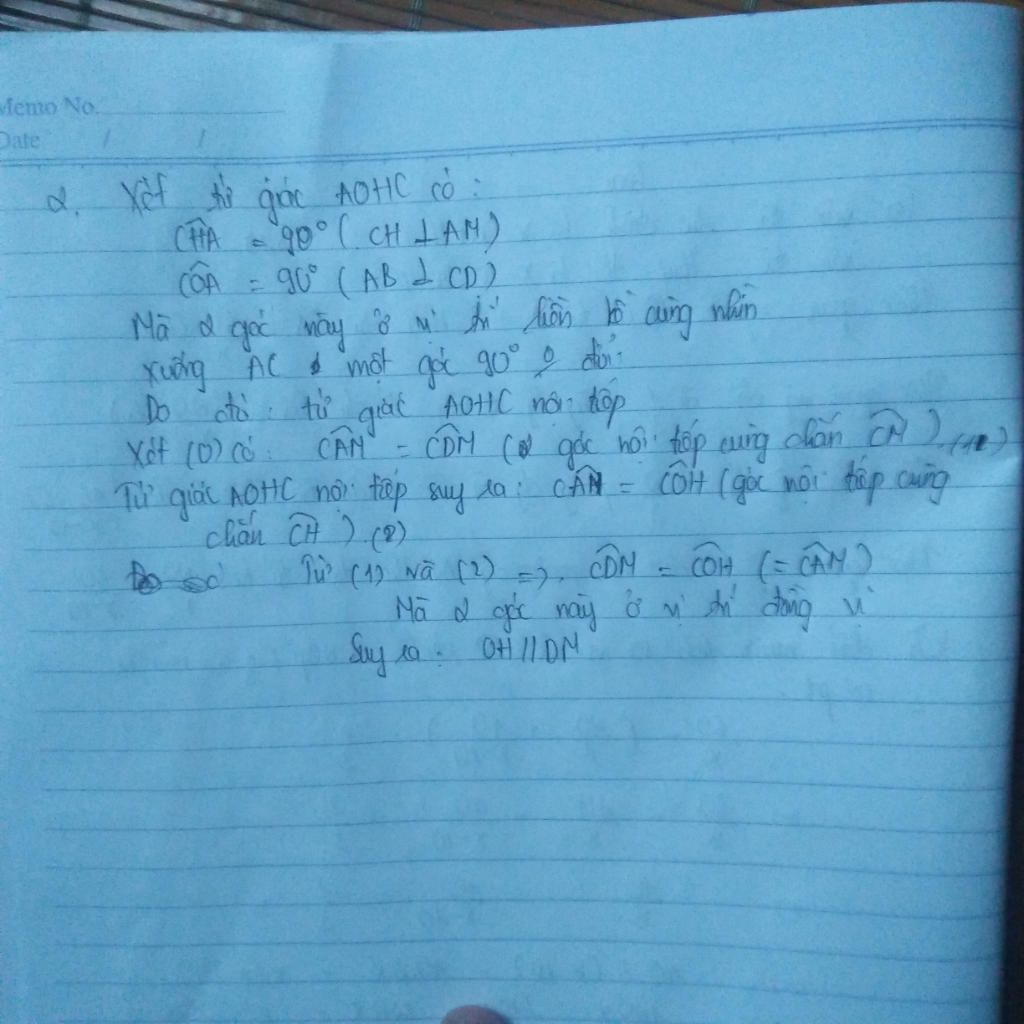 Memo No.
Date / /
2. Xét tứ giác AOHC có:
CHA = 90° (CH ⊥ AM)
COA = 90° (AB ⊥ CD)
Mà 2 góc này ở vị trí liền kề cùng nhìn
xuống AC một góc 90° đối
Do đó: tứ giác AOHC nội tiếp
Xét (O) có: CAM = CDM (2 góc nội tiếp cùng chắn CM) (1)
Tứ giác AOHC nội tiếp suy ra: CAM = COH (góc nội tiếp cùng
chắn CH) (2)
Từ (1) và (2) => CDM = COH (= CAM)
Mà 2 góc này ở vị trí đồng vị
Suy ra: OH // DM